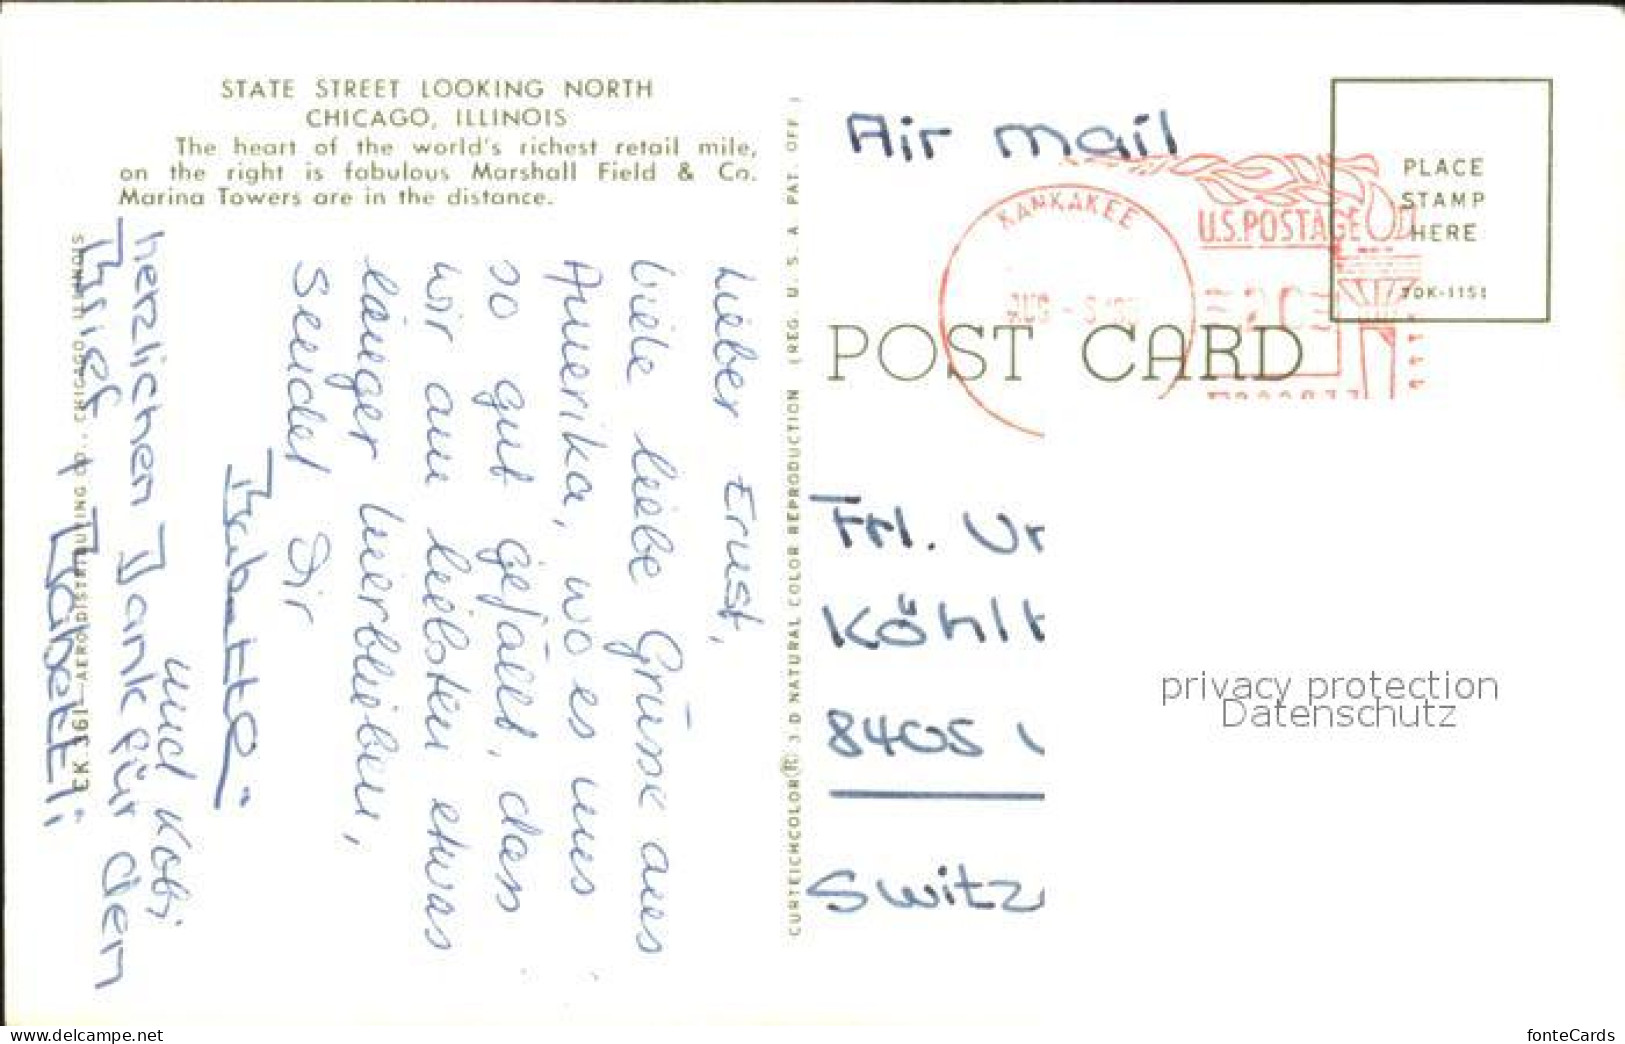 STATE STREET LOOKING NORTH
CHICAGO, ILLINOIS
The heart of the world's richest retail mile,
on the right is fabulous Marshall Field & Co.
Marina Towers are in the distance.
Lieber Ernst,
Viele liebe Grüsse aus
Amerika, wo es uns
so gut gefällt, dass
wir am liebsten etwas
länger hierblieben,
Sendet Dir
Babette
und Kobi
herzlichen Dank für den
Brief!
EK.361—AERO DISTRIBUTING CO., CHICAGO, ILLINOIS
CURTEICHCOLOR® 3 D NATURAL COLOR REPRODUCTION (REG. U. S. A. PAT. OFF.)
Air mail
KANKAKEE
AUG
U.S.POSTAGE
PLACE
STAMP
HERE
7DK-1151
POST CARD
Frl. Ur
Köhlt
8405
Switz
privacy protection
Datenschutz
www.delcampe.net
fonteCards